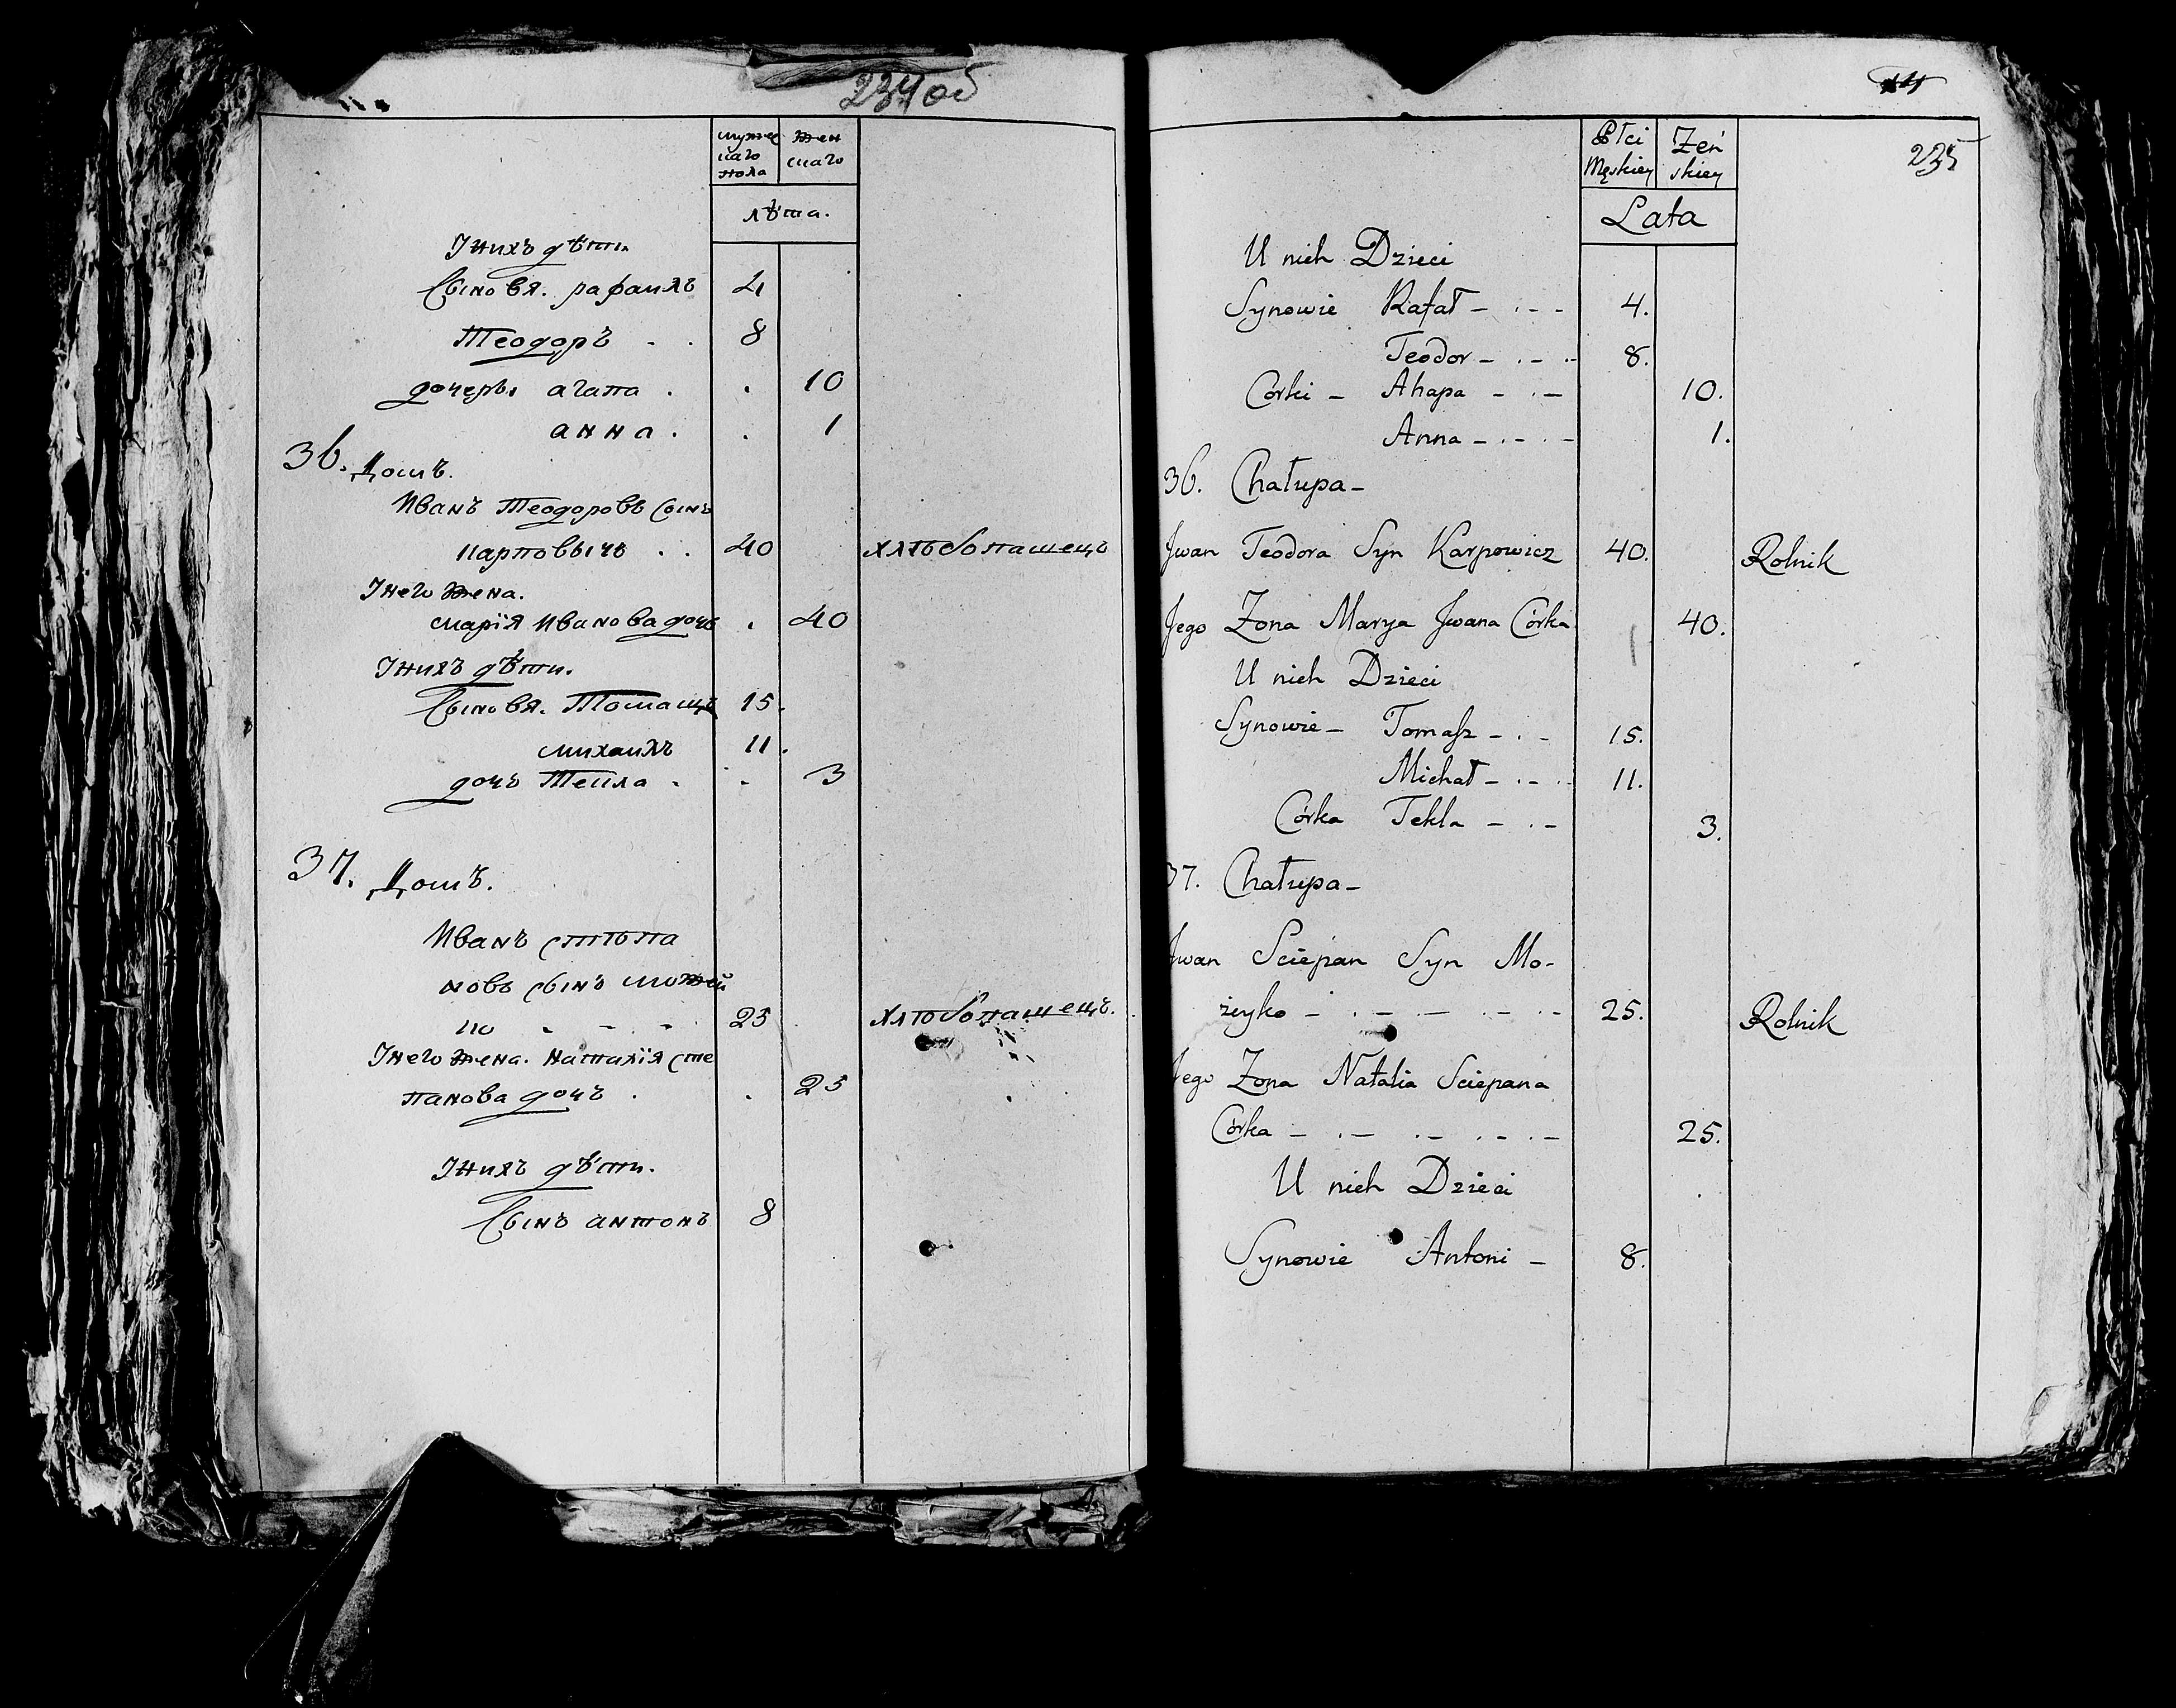 234 об
мужес
каго
пола
жен
скаго
лѣта.
Унихъ дѣти.
Сыновя. рафаилъ 4
Теодоръ . . 8
дочеры агапа . . 10
анна . . 1
36. Домъ.
Иванъ Теодоровъ сынъ
карповычъ . . 40 хлѣбопашецъ
Унего жена.
марія Иванова дочь . 40
Унихъ дѣти.
Сыновя. Томашъ 15.
михаилъ 11.
дочъ Текла . - 3
37. Домъ.
Иванъ стѣпа
новъ сынъ можей
ко - - - 25 хлѣбопашецъ.
Унего жена. наталія сте
панова дочъ . . 25
Унихъ дѣти.
Сынъ антонъ 8
235
Płci
Męskiey
Żeń
skiey
Lata
U nich Dzieci
Synowie Rafał - . - - 4.
Teodor - . - - 8.
Córki - Ahapa - . - 10.
Anna - . - . - 1.
36. Chałupa -
Jwan Teodora Syn Karpowicz 40. Rolnik
Jego Zona Marya Jwana Córka 40.
U nich Dzieci
Synowie - Tomasz - . - 15.
Michał - . - - 11.
Córka Tekla - . - 3.
37. Chałupa -
Jwan Sciepan Syn Mo-
żeyko - . - . - . - - 25. Rolnik
Jego Zona Natalia Sciepana
Córka - . - . - . - . - 25.
U nich Dzieci
Synowie Antoni - 8.